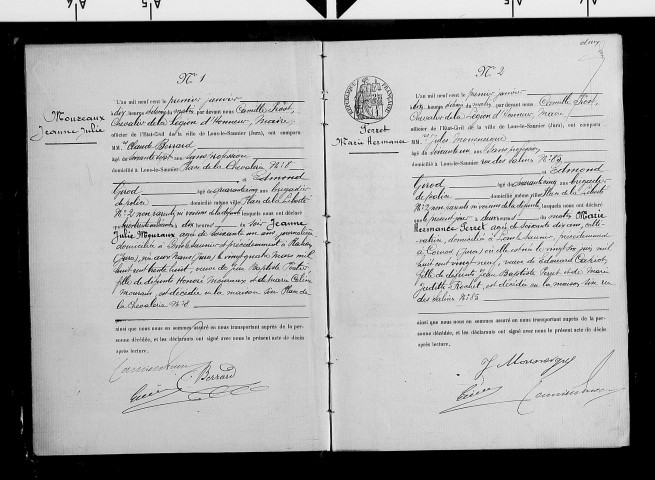 N° 1
Moureaux
Jeanne Julie
L'an mil neuf cent le premier janvier
dix heures du matin par devant nous Camille Prost,
Chevalier de la Légion d'Honneur, Maire,
officier de l'Etat-Civil de la ville de Lons-le-Saunier (Jura), ont comparu
MM. Claud Berrard
âgé de soixante sept ans sans profession
domicilié à Lons-le-Saunier Place de la Chevalerie N° 8
et Edmond
Girod âgé de quarante cinq ans brigadier
de police domicilié même ville Place de la Liberté
N° 2 non parents ni voisins de la défunte lesquels nous ont déclaré
à dix heures du soir Jeanne
Julie Moureaux agée de soixante un ans, journalière
domiciliée à Lons-le-Saunier et précédemment à
(Jura), née aux Nans (Jura) le vingt quatre Mars mil
huit cent trente huit, veuve de Jean Baptiste
fille de défunts Honoré Moureaux et de Marie
est décédée en la maison sise Place de
la Chevalerie N° 8
ainsi que nous nous en sommes assuré en nous transportant auprès de la personne décédée, et les déclarants ont signé avec nous le présent acte de décès
après lecture.
C. Berrard
N° 2
REPUBLIQUE FRANÇAISE
Perret
Marie Hermance
L'an mil neuf cent le premier janvier
dix heures du matin par devant nous Camille Prost,
Chevalier de la Légion d'Honneur, Maire
officier de l'Etat-Civil de la ville de Lons-le-Saunier (Jura), ont comparu
MM. Jules
âgé de soixante ans sans profession
domicilié à Lons-le-Saunier rue des Salines N° 85
et Edmond
Girod âgé de quarante cinq ans brigadier
de police domicilié même ville Place de la Liberté
N° 2 non parents ni voisins de la défunte, lesquels nous ont déclaré
du matin Marie
Hermance Perret agée de soixante dix ans,
domiciliée à Lons-le-Saunier, précédemment
à Cornod (Jura) où elle est née le vingt six juin mil
huit cent vingt neuf, veuve d'Edouard
fille de défunts Jean Baptiste Perret et de Marie
Judith Rochet, est décédée en la maison sise rue
des Salines N° 85
ainsi que nous nous en sommes assuré en nous transportant auprès de la personne décédée, et les déclarants ont signé avec nous le présent acte de décès
après lecture.